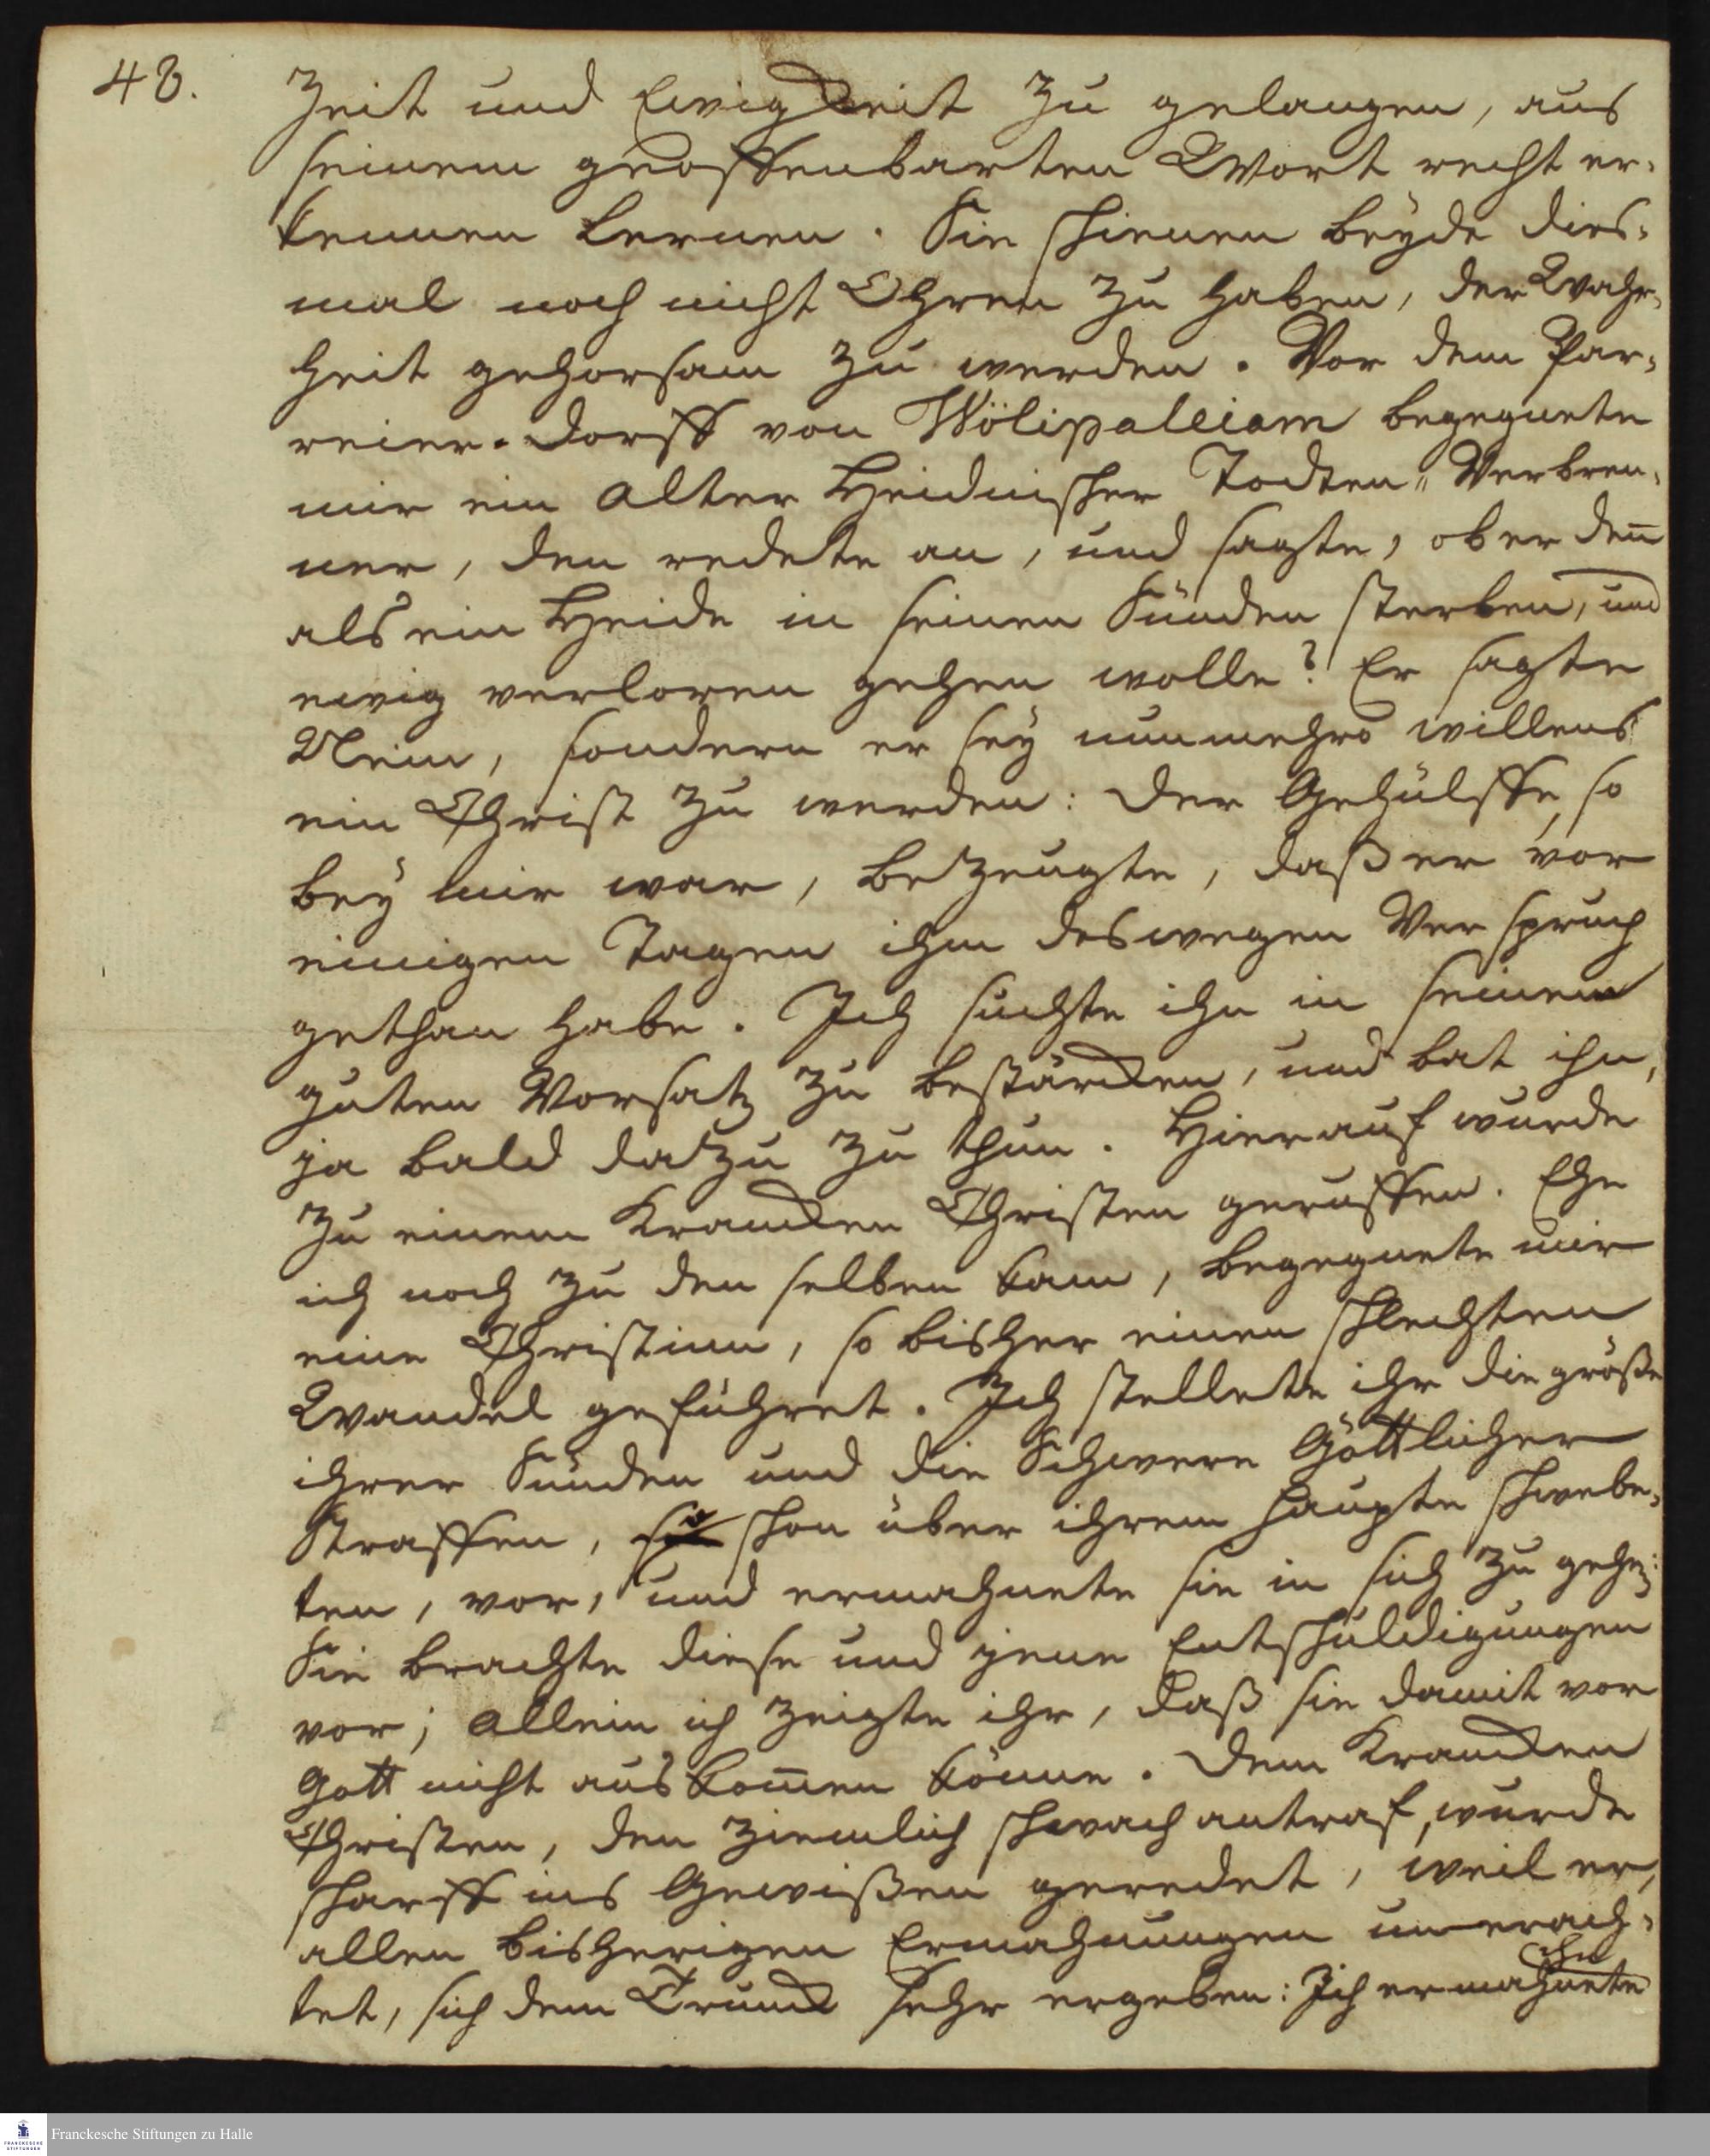 48.
Zeit und Ewigkeit zu gelangen, aus
seinem geoffenbarten Wort recht er-
kennen lernen. Sie schienen beyde dies-
mal noch nicht Ohren zu haben, der Wahr-
heit gehorsam zu werden. Vor dem Par-
reier-Dorff von Wölipalleiam begegnete
mir ein alter Heidnischer Todten-Verbren-
ner, den redete an, und sagte, ob er den̄
als ein Heide in seinen Sünden sterben, und
ewig verloren gehen wolle? Er sagte
Nein, sondern er sey nunmehro willens
ein Christ zu werden: Der Gehülffe, so
bey mir war, bezeugte, daß er vor
einigen Tagen ihm deswegen Verspruch
gethan habe. Ich suchte ihn in seinem
guten Vorsatz zu bestärcken, und bat ihn,
ja bald dazu zu thun. Hierauf wurde
zu einem Krancken Christen geruffen. Ehe
ich noch zu denselben kam, begegnete mir
eine Christinn, so bisher einen schlechten
Wandel geführet. Ich stellete ihr die größe
ihrer Sünden und die Schwere Göttlicher
Straffen, so schon über ihrem Haupte schwebe-
ten, vor, und ermahnete sie in sich zu gehen:
Sie brachte diese und jene Entschuldigungen
vor; allein ich zeigte ihr, daß sie damit vor
Gott nicht auskom̄en könne. Dem Krancken
Christen, den ziemlich schwach antraf, wurde
scharff ins Gewißen geredet, weil er,
allen bisherigen Ermahnungen unerach-
tet, sich dem Trunck sehr ergeben: Ich ermahnete
ihn
Franckesche Stiftungen zu Halle